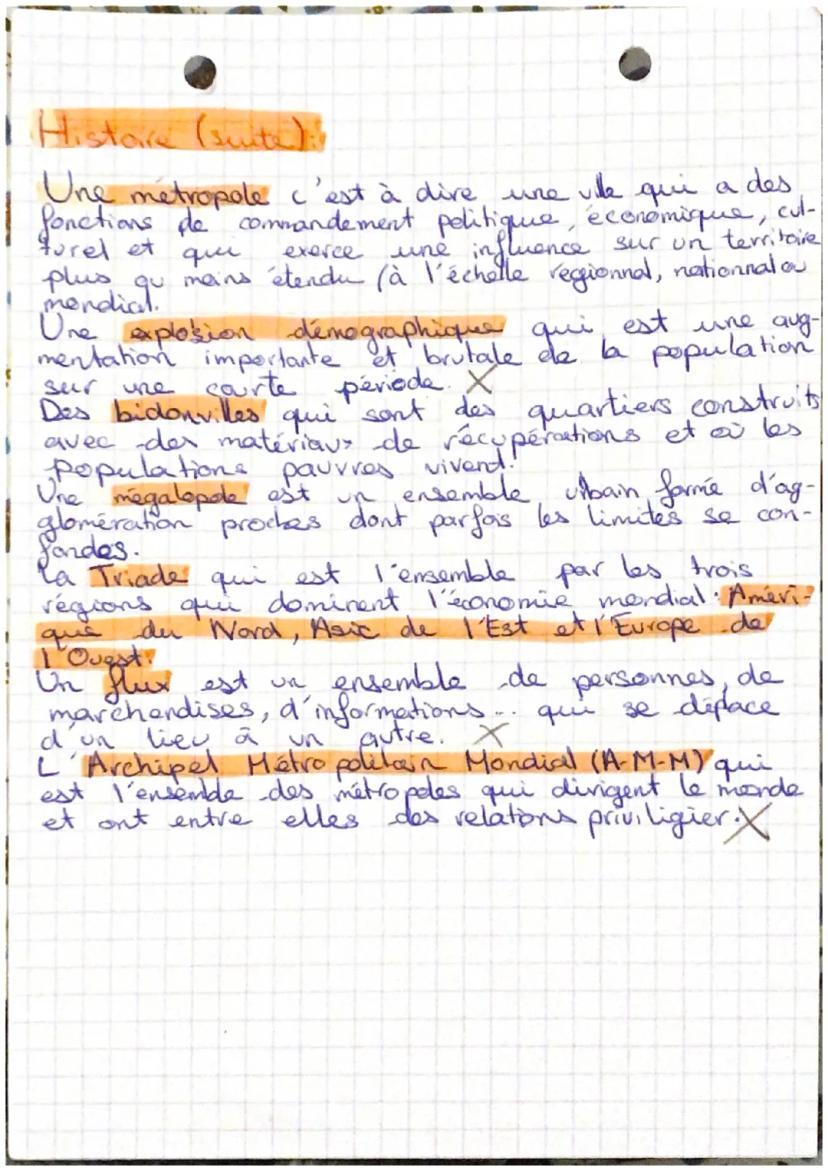 Histoire (suite):
Une métropole c'est à dire une ville qui a des
fonctions de commandement politique, économique, cul-
turel et qui exerce une influence sur un territoire
plus ou moins étendu (à l'échelle régionnal, nationnal ou
mondial.
Une explosion démographique qui est une aug-
mentation importante et brutale de la population
sur une courte période. X
Des bidonvilles qui sont des quartiers construits
avec des matériaux de récupérations et où les
populations pauvres vivent.
Une mégalopole est un ensemble urbain formé d'ag-
glomération proches dont parfois les limites se con-
fondes.
La Triade qui est l'ensemble par les trois
régions qui dominent l'économie mondial : Améri-
que du Nord, Asie de l'Est et l'Europe de
l'Ouest.
Un flux est un ensemble de personnes, de
marchandises, d'informations... qui se déplace
d'un lieu à un autre. X
L'Archipel Métropolitain Mondial (A-M-M) qui
est l'ensemble des métropoles qui dirigent le monde
et ont entre elles des relations priviligier. X